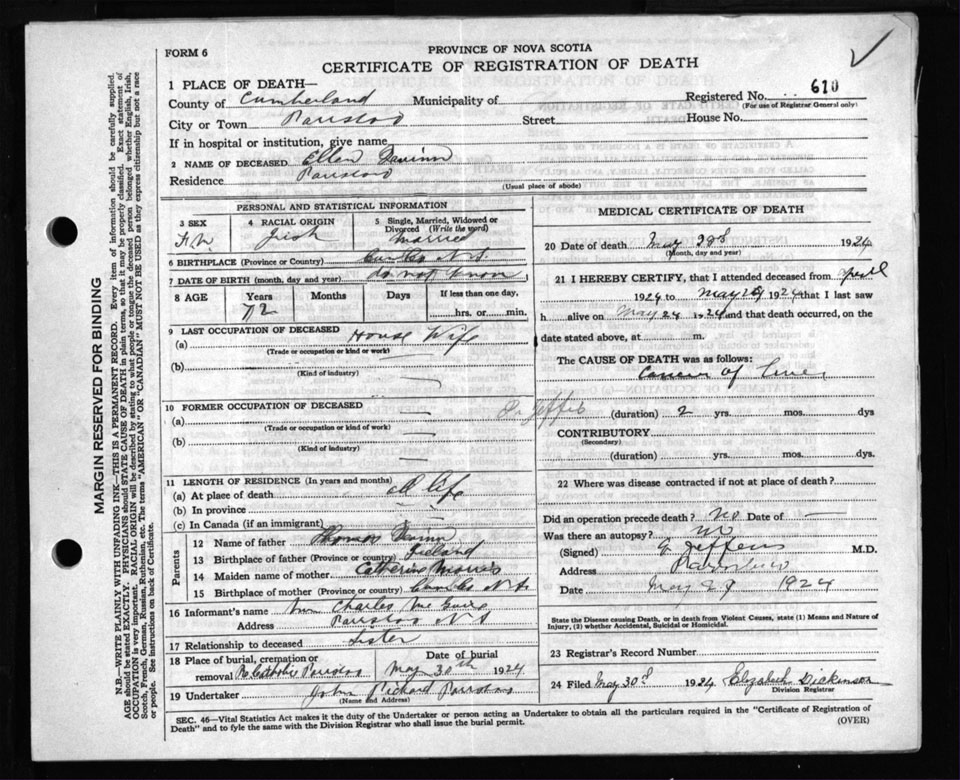 FORM 6
PROVINCE OF NOVA SCOTIA
CERTIFICATE OF REGISTRATION OF DEATH
1 PLACE OF DEATH— Registered No. 610
(For use of Registrar General only)
County of Cumberland Municipality of
City or Town Street House No.
If in hospital or institution, give name
2 NAME OF DECEASED Ellen
Residence
(Usual place of abode)
PERSONAL AND STATISTICAL INFORMATION
3 SEX 4 RACIAL ORIGIN 5 Single, Married, Widowed or Divorced (Write the word)
Irish Married
6 BIRTHPLACE (Province or Country) N.S.
7 DATE OF BIRTH (month, day and year) do not know
8 AGE Years Months Days If less than one day,
72 hrs. or min.
9 LAST OCCUPATION OF DECEASED
(a) House Wife
(Trade or occupation or kind or work)
(b)
(Kind of industry)
10 FORMER OCCUPATION OF DECEASED
(a)
(Trade or occupation or kind of work)
(b)
(Kind of industry)
11 LENGTH OF RESIDENCE (In years and months)
(a) At place of death all life
(b) In province
(c) In Canada (if an immigrant)
Parents
12 Name of father Thomas
13 Birthplace of father (Province or country) Ireland
14 Maiden name of mother Catherine Morris
15 Birthplace of mother (Province or country) N.S.
16 Informant's name Charles
Address N S
17 Relationship to deceased Sister
18 Place of burial, cremation or removal Date of burial
May 30th 1924
19 Undertaker John Rickard
(Name and Address)
MEDICAL CERTIFICATE OF DEATH
20 Date of death May 1924
(Month, day and year)
21 I HEREBY CERTIFY, that I attended deceased from
1924 to May 1924 that I last saw
h alive on May 24 1924 and that death occurred, on the
date stated above, at m.
The CAUSE OF DEATH was as follows:
Cancer of
Dr Jeffers
(duration) 2 yrs. mos. dys
CONTRIBUTORY
(Secondary)
(duration) yrs. mos. dys.
22 Where was disease contracted if not at place of death?
Did an operation precede death? No Date of
Was there an autopsy? No
(Signed) Jeffers M.D.
Address
Date May 1924
State the Disease causing Death, or in death from Violent Causes, state (1) Means and Nature of
Injury, (2) whether Accidental, Suicidal or Homicidal.
23 Registrar's Record Number
24 Filed May 30 1924 Elizabeth Dickinson
Division Registrar
SEC. 46—Vital Statistics Act makes it the duty of the Undertaker or person acting as Undertaker to obtain all the particulars required in the "Certificate of Registration of
Death" and to fyle the same with the Division Registrar who shall issue the burial permit. (OVER)
MARGIN RESERVED FOR BINDING
N.B.—WRITE PLAINLY WITH UNFADING INK—THIS IS A PERMANENT RECORD. Every item of information should be carefully supplied.
AGE should be stated EXACTLY. PHYSICIANS should STATE CAUSE OF DEATH in plain terms, so that it may be properly classified. Exact statement of
OCCUPATION is very important. RACIAL ORIGIN will be described by stating to what people or tongue the deceased person belonged whether English, Irish,
Scotch, French, German, Russian, Ruthenian, etc. The terms "AMERICAN" OR "CANADIAN" MUST NOT BE USED as they express citizenship but not a race
or people. See instructions on back of Certificate.